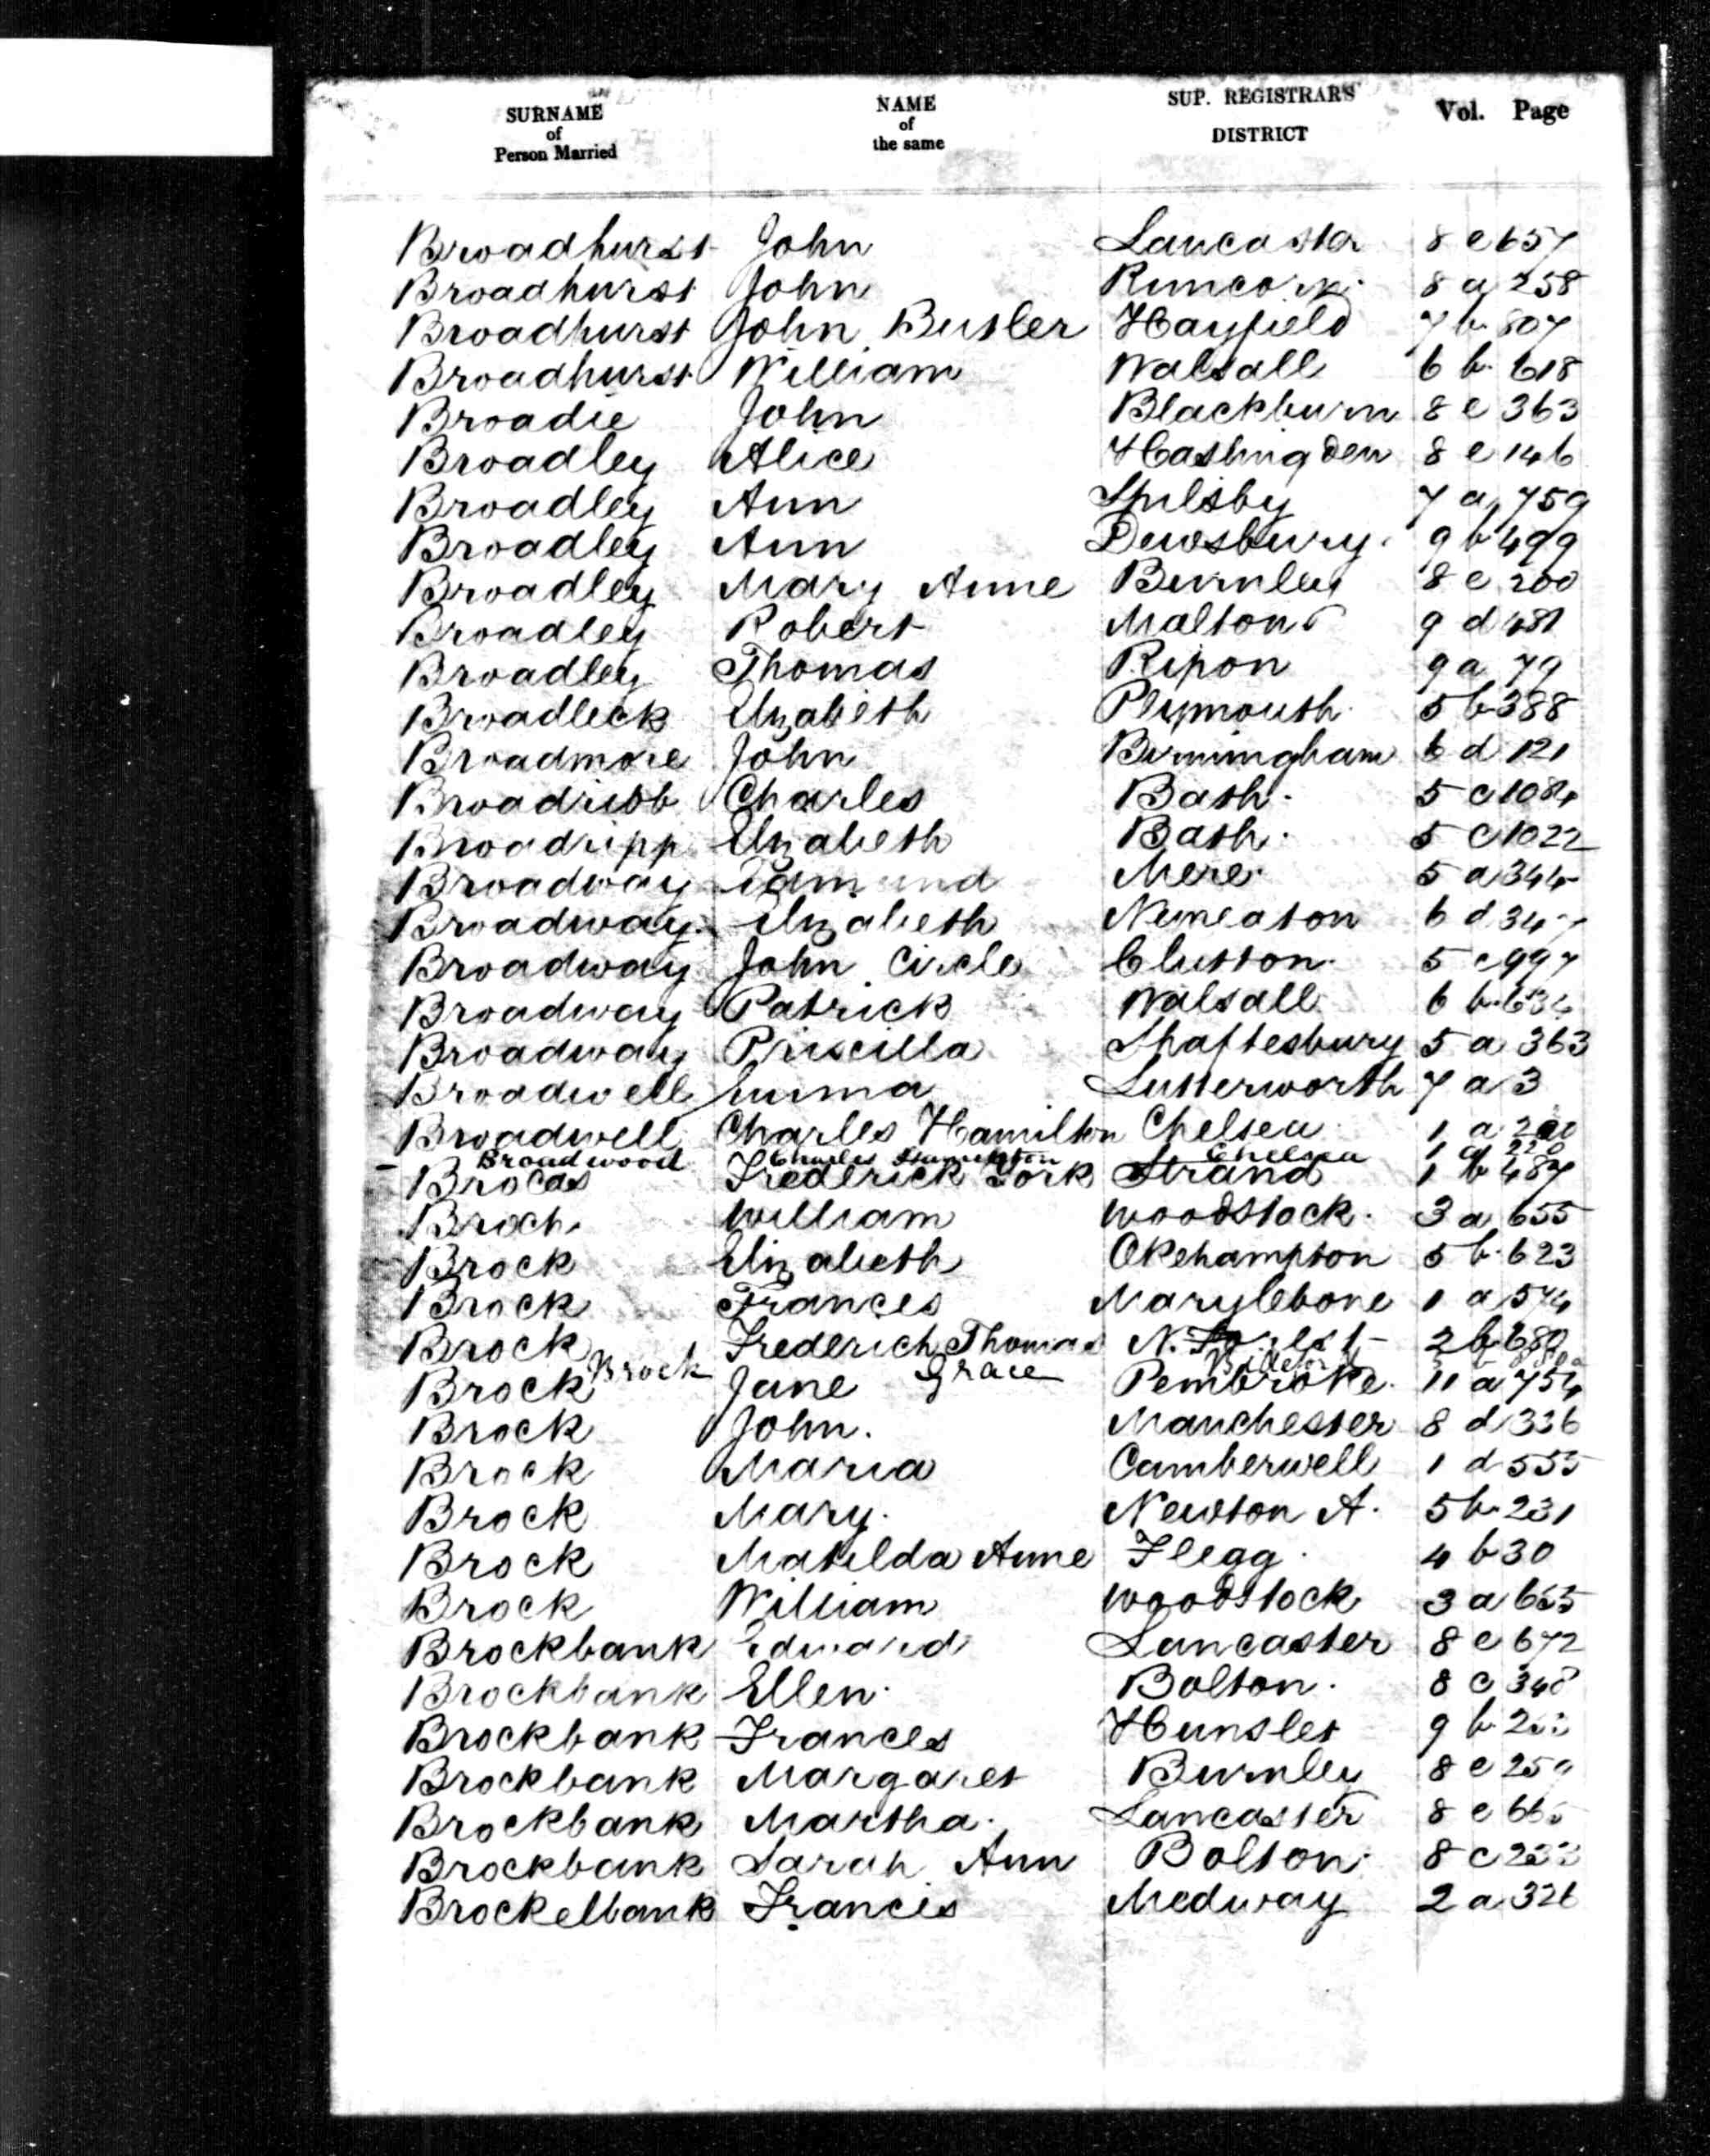 SURNAME of Person Married NAME of the same SUP. REGISTRARS DISTRICT Vol. Page
Broadhurst John Lancaster 8 e 657
Broadhurst John Runcorn 8 a 258
Broadhurst John Butler Hayfield 7 b 807
Broadhurst William Walsall 6 b 618
Broadie John Blackburn 8 e 363
Broadley Alice Haslingden 8 e 146
Broadley Ann Spilsby 7 a 759
Broadley Ann Dewsbury 9 b 499
Broadley Mary Anne Burnley 8 e 200
Broadley Robert Malton 9 d 481
Broadley Thomas Ripon 9 a 79
Broadleck Elizabeth Plymouth 5 b 388
Broadmore John Birmingham 6 d 121
Broadribb Charles Bath 5 c 1084
Broadripp Elizabeth Bath 5 c 1022
Broadway Edmund Mere 5 a 344
Broadway Elizabeth Nuneaton 6 d
Broadway John Circle Clutton 5 c 997
Broadway Patrick Walsall 6 b 634
Broadway Priscilla Shaftesbury 5 a 363
Broadwell Emma Lutterworth 7 a 3
Broadwell Charles Hamilton Chelsea 1 a
Broadwood Charles Chelsea 1 a 220
Brocas Frederick York Strand 1 b 487
Broch William Woodstock 3 a 655
Brock Elizabeth Okehampton 5 b 623
Brock Frances Marylebone 1 a 574
Brock Frederich Thomas 2 b 680
Brock Grace Bideford
Brock Jane Pembroke 11 a 754
Brock John. Manchester 8 d 336
Brock Maria Camberwell 1 d 555
Brock Mary. Newton A. 5 b 231
Brock Matilda Anne Flegg 4 b 30
Brock William Woodstock 3 a 655
Brockbank Edward Lancaster 8 e 672
Brockbank Ellen Bolton. 8 c 348
Brockbank Frances Hunslet 9 b
Brockbank Margaret Burnley 8 e 259
Brockbank Martha. Lancaster 8 e
Brockbank Sarah Ann Bolton 8 c 233
Brockelbank Francis Medway 2 a 326